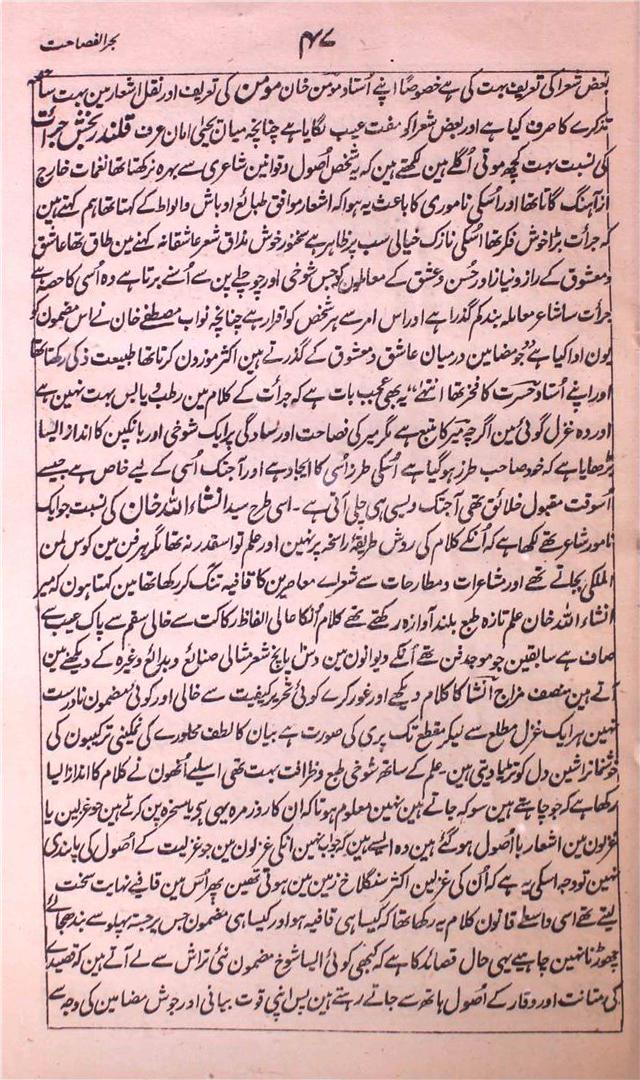 بحر الفصاحت
۴۷
بعض شعرا کی تعریف بہت کی ہے خصوصاً اپنے اُستاد مومن خان مومن کی تعریف اور نقل اشعار مین بہت سا
تذکرے کا صرف کیا ہے اور بعض شعرا کو مفت عیب لگایا ہے چنانچہ میان یحییٰ امان عرف قلندر بخش جرأت
کی نسبت بہت کچھ موتی اُگلے ہین لکھتے ہین کہ یہ شخص اُصول و قوانین شاعری سے بہرہ نرکھتا تھا نغمات خارج
از آہنگ گاتا تھا اور اُسکی ناموری کا باعث یہ ہوا کہ اشعار موافق طبائع اوباش والواط کے کہتا تھا ہم کہتے ہین
کہ جرأت بڑا خوش فکر تھا اُسکی نازک خیالی سب پر ظاہر ہے سخنور خوش مذاق شعر عاشقانہ کہنے مین طاق تھا عاشق
و معشوق کے راز و نیاز اور حُسن و عشق کے معاملون کو جس شوخی اور چوچلے پن سے اُسنے برتا ہے وہ اُسی کا حصہ ہے
جرأت سا شاعر معاملہ بند کم گذرا ہے اور اس امر سے ہر شخص کو اقرار ہے چنانچہ نواب مصطفےٰ خان نے اس مضمون کو
یون ادا کیا ہے جو مضامین درمیان عاشق و معشوق کے گذرتے ہین اکثر موزون کرتا تھا طبیعت ذکی رکھتا تھا
اور اپنے اُستاد حسرت کا فخر تھا انتہیٰ یہ بھی عجیب بات ہے کہ جرأت کے کلام مین رطب و یابس بہت نہین ہے
اور وہ غزل گوئی مین اگرچہ میر کا متبع ہے مگر میر کی فصاحت اور سادگی پر ایک شوخی اور بانکپن کا انداز ایسا
بڑھایا ہے کہ خود صاحب طرز ہو گیا ہے اُسکی طرز اُسی کا ایجاد ہے اور آجتک اُسی کے لیے خاص ہے جیسے
اُسوقت مقبول خلائق تھی آجتک ویسی ہی چلی آتی ہے۔ اسی طرح سید انشاء اللہ خان کی نسبت جو ایک
نامور شاعر تھے لکھا ہے کہ اُنکے کلام کی روش طریقۂ راسخہ پر نہین اور علم تو اسقدر نہ تھا مگر ہر فن مین کوس لمن
الملکی بجاتے تھے اور مشاعرات و مطارحات سے شعراے معاصرین کا قافیہ تنگ کر رکھا تھا مین کہتا ہون کہ میر
انشاء اللہ خان علم تازہ طبع بلند آوازہ رکھتے تھے کلام اُنکا عالی الفاظ رکاکت سے خالی سقم سے پاک عیب سے
صاف ہے سابقین جو موجد فن تھے اُنکے دیوانون مین دس پانچ شعر مثالی صنائع و بدائع وغیرہ کے دیکھنے مین
آتے ہین منصف مزاج انشا کا کلام دیکھے اور غور کرے کوئی تحریر کیفیت سے خالی اور کوئی مضمون نادرست
نہین ہر ایک غزل مطلع سے لیکر مقطع تک پری کی صورت ہے بیان کا لطف محاورے کی نمکینی ترکیبون کی
خوشنما تراشین دل کو تڑپا دیتی ہین۔ علم کے ساتھ شوخی طبع و ظرافت بہت تھی اسلیے اُنھون نے کلام کا انداز ایسا
رکھا ہے کہ جو چاہتے ہین سو کہہ جاتے ہین نہین معلوم ہوتا کہ ان کا روزمرہ یہی ہے یا مسخرہ پن کرتے ہین جو غزلین یا
غزلون مین اشعار با اُصول ہو گئے ہین وہ ایسے ہین کہ جواب نہین انکی غزلون مین جو غزلیت کے اُصول کی پابندی
نہین تو وجہ اسکی یہ ہے کہ اُن کی غزلین اکثر سنگلاخ زمین مین ہوتی تھین پھر اُس مین قافیے نہایت سخت
لیتے تھے اسی واسطے قانون کلام یہ رکھا تھا کہ کیسا ہی قافیہ ہو اور کیسا ہی مضمون جس برجستہ پہلو سے بندھ جائے
چھوڑنا نہین چاہیے یہی حال قصائد کا ہے کہ کبھی کوئی ایسا شوخ مضمون نئی تراش سے لے آتے ہین کہ قصیدے
کی متانت اور وقار کے اُصول ہاتھ سے جاتے رہتے ہین پس اپنی قوت بیانی اور جوش مضامین کی وجہ سے